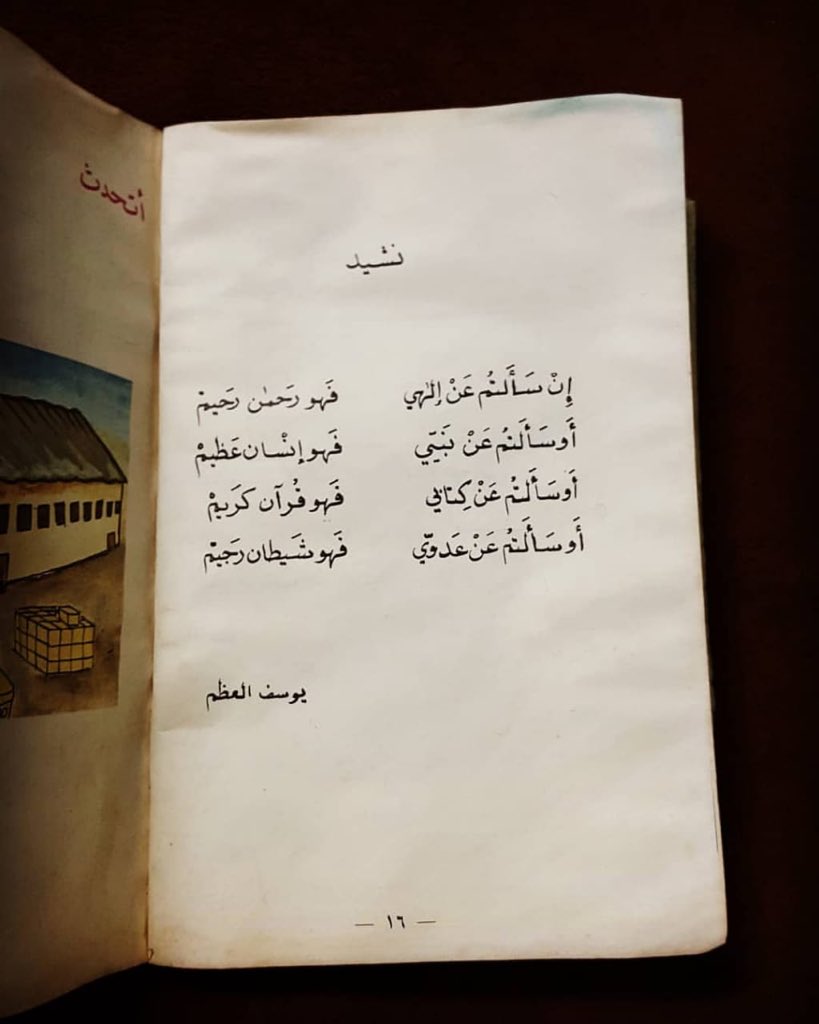 أتحدث
نشيد
إِنْ سَأَلتُم عَنْ إلٰهي فَهو رَحمٰن رَحيمْ
أَو سَأَلتُم عَنْ نَبيّي فَهو إنْسان عَظيمْ
أَو سَأَلتُم عَنْ كِتابي فَهو قُرآن كَريمْ
أَو سَأَلتُم عَنْ عَدوّي فَهو شَيطان رَجيمْ
يوسف العظم
— ١٦ —